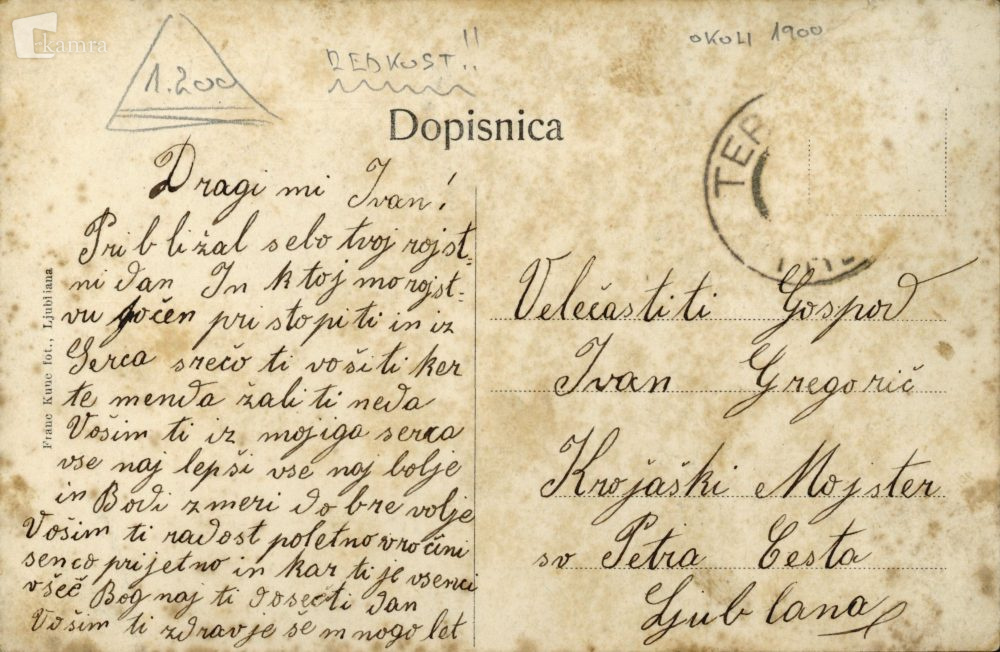 kamra
1.200
REDKOST!!
OKOLI 1900
Dopisnica
TER
Dragi mi Ivan!
Približal se bo tvoj rojst-
ni dan In k tojmo rojst-
vu točen pri stopiti in iz
Serca srečo ti vošiti ker
te menda žaliti neda
Vošim ti iz mojiga serca
vse naj lepši vse naj bolje
in Bodi zmeri dobre volje
Vošim ti radost poletno vročini
senco prijetno in kar ti je vsenci
všeč Bog naj ti doseči dan
Vošim ti zdravje se mnogo let
Franc Kunc fot., Ljubljana
Velečastiti Gospod
Ivan Gregorič
Krojaški Mojster
sv Petra Cesta
Ljublana